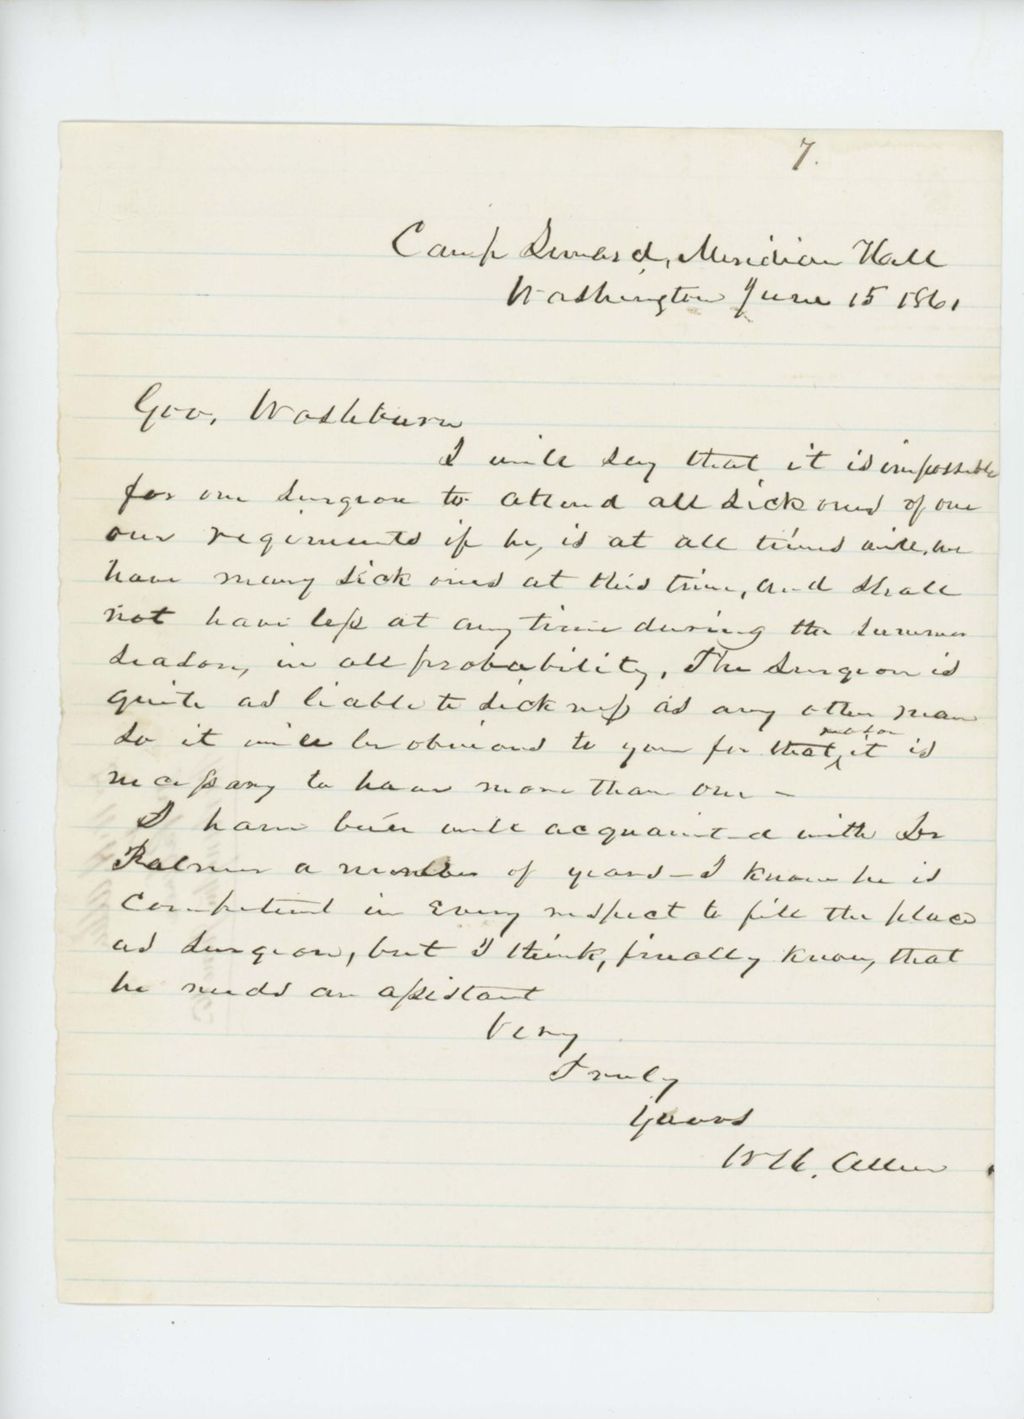 7.
Camp Seward, Meridian Hill
Washington June 15 1861
Gov. Washburn
I will say that it is impossible
for one Surgeon to attend all Sick ones of one
our regiments if he, is at all times well, we
have many Sick ones at this time, and shall
not have less at any time during the Summer
Season, in all probability. The Surgeon is
quite as liable to Sickness as any other man
So it will be obvious to you for that reason it is
necessary to have more than one –
I have been well acquainted with Dr
Palmer a number of years – I know he is
Competent in Every respect to fill the place
as Surgeon, but I think, finally know, that
he needs an assistant
Very
Truly
Yours
Allen